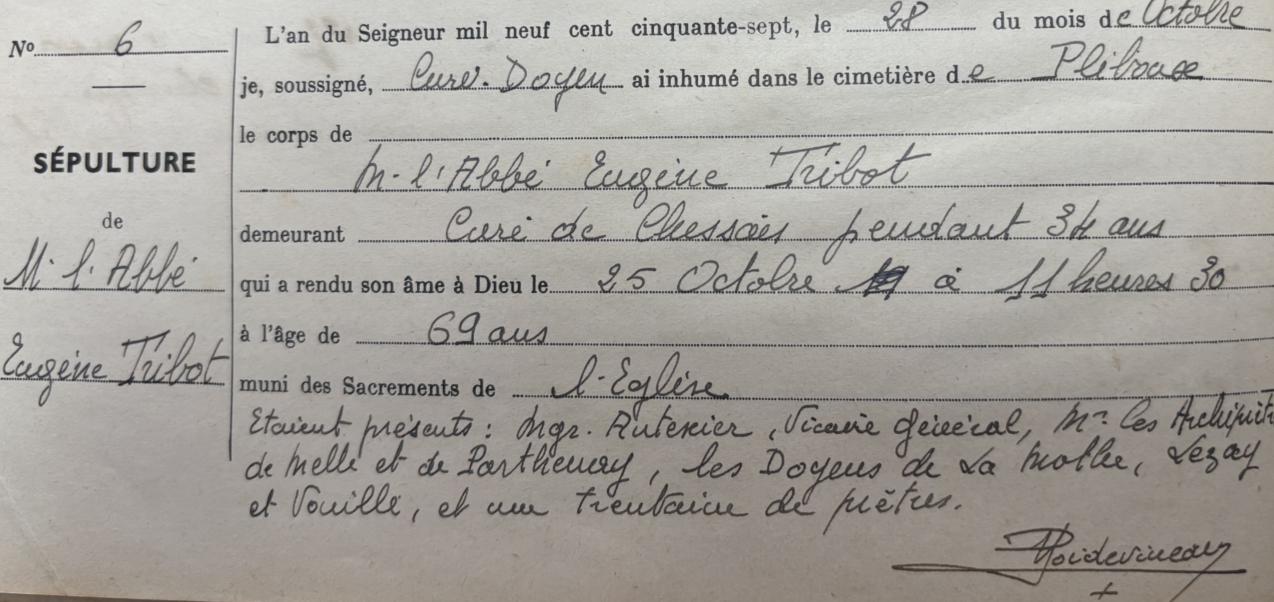 Nº 6
SÉPULTURE
de
M. l'Abbé
Eugène Tribot
L'an du Seigneur mil neuf cent cinquante-sept, le 28 du mois de Octobre
je, soussigné, Curé-Doyen ai inhumé dans le cimetière de
le corps de
M. l'Abbé Eugène Tribot
demeurant Curé de pendant 34 ans
qui a rendu son âme à Dieu le 25 Octobre à 11 heures 30
à l'âge de 69 ans
muni des Sacrements de l'Eglise
Etaient présents : Mgr. Vicaire général, Mrs les Archiprêt
de Melle et de Parthenay, les Doyens de La Mothe, Lezay
et Vouillé, et une trentaine de prêtres.